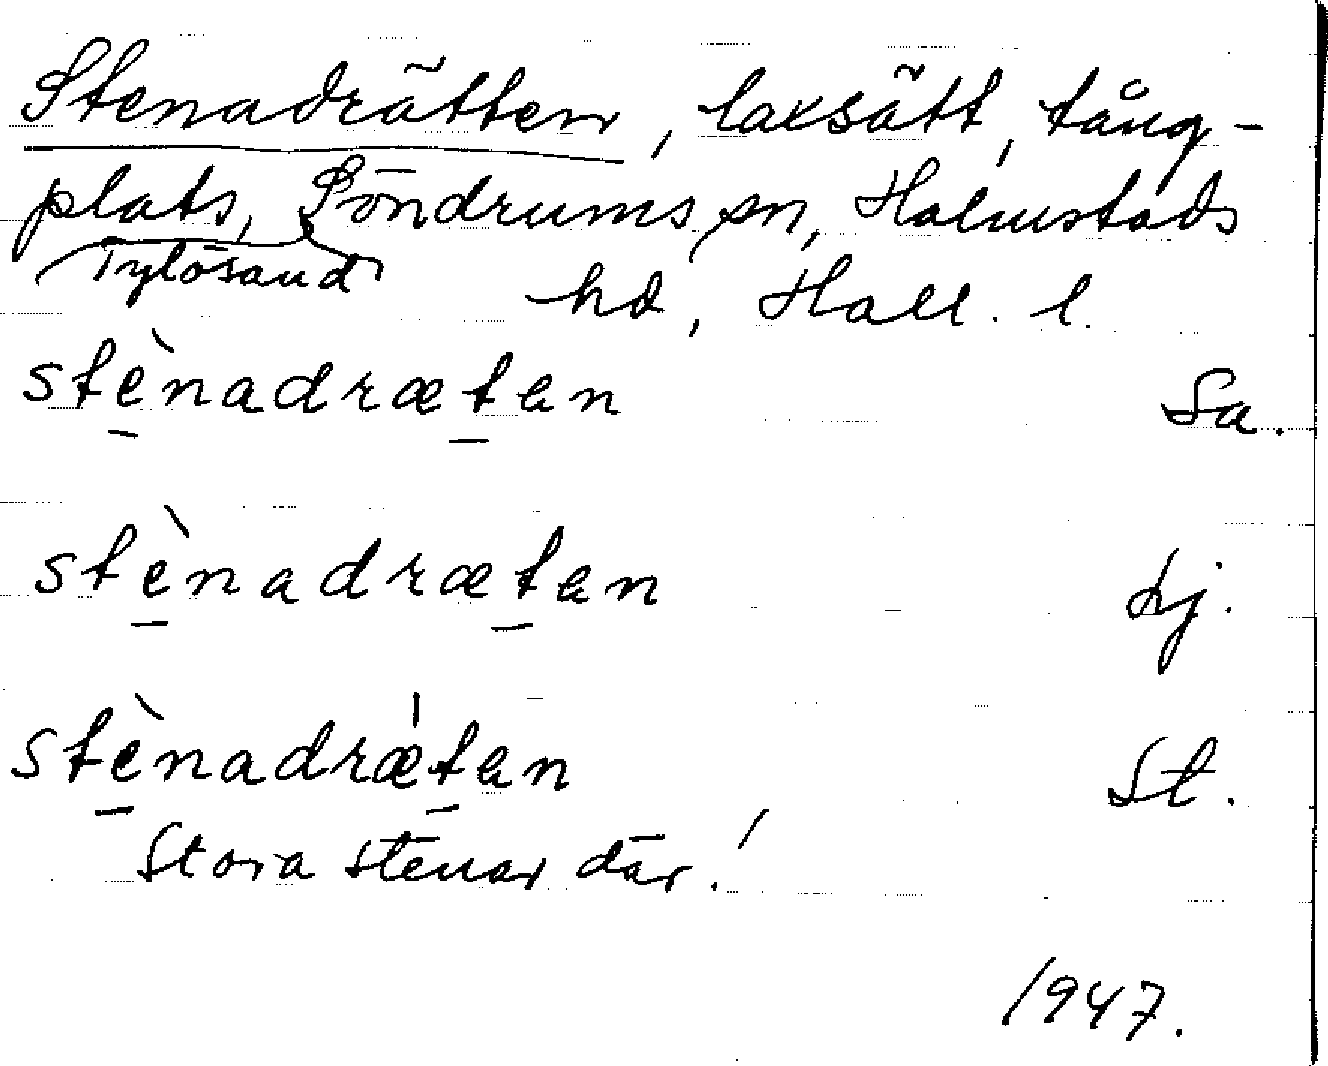 Stenadrätten, laxsätt, tång-
plats, Söndrums sn, Halmstads
Tylösand
hd, Hall. l.
stènadrætan Sa.
stènadrætan Lj.
stènadræ̍tan St.
Stora stenar där!
1947.